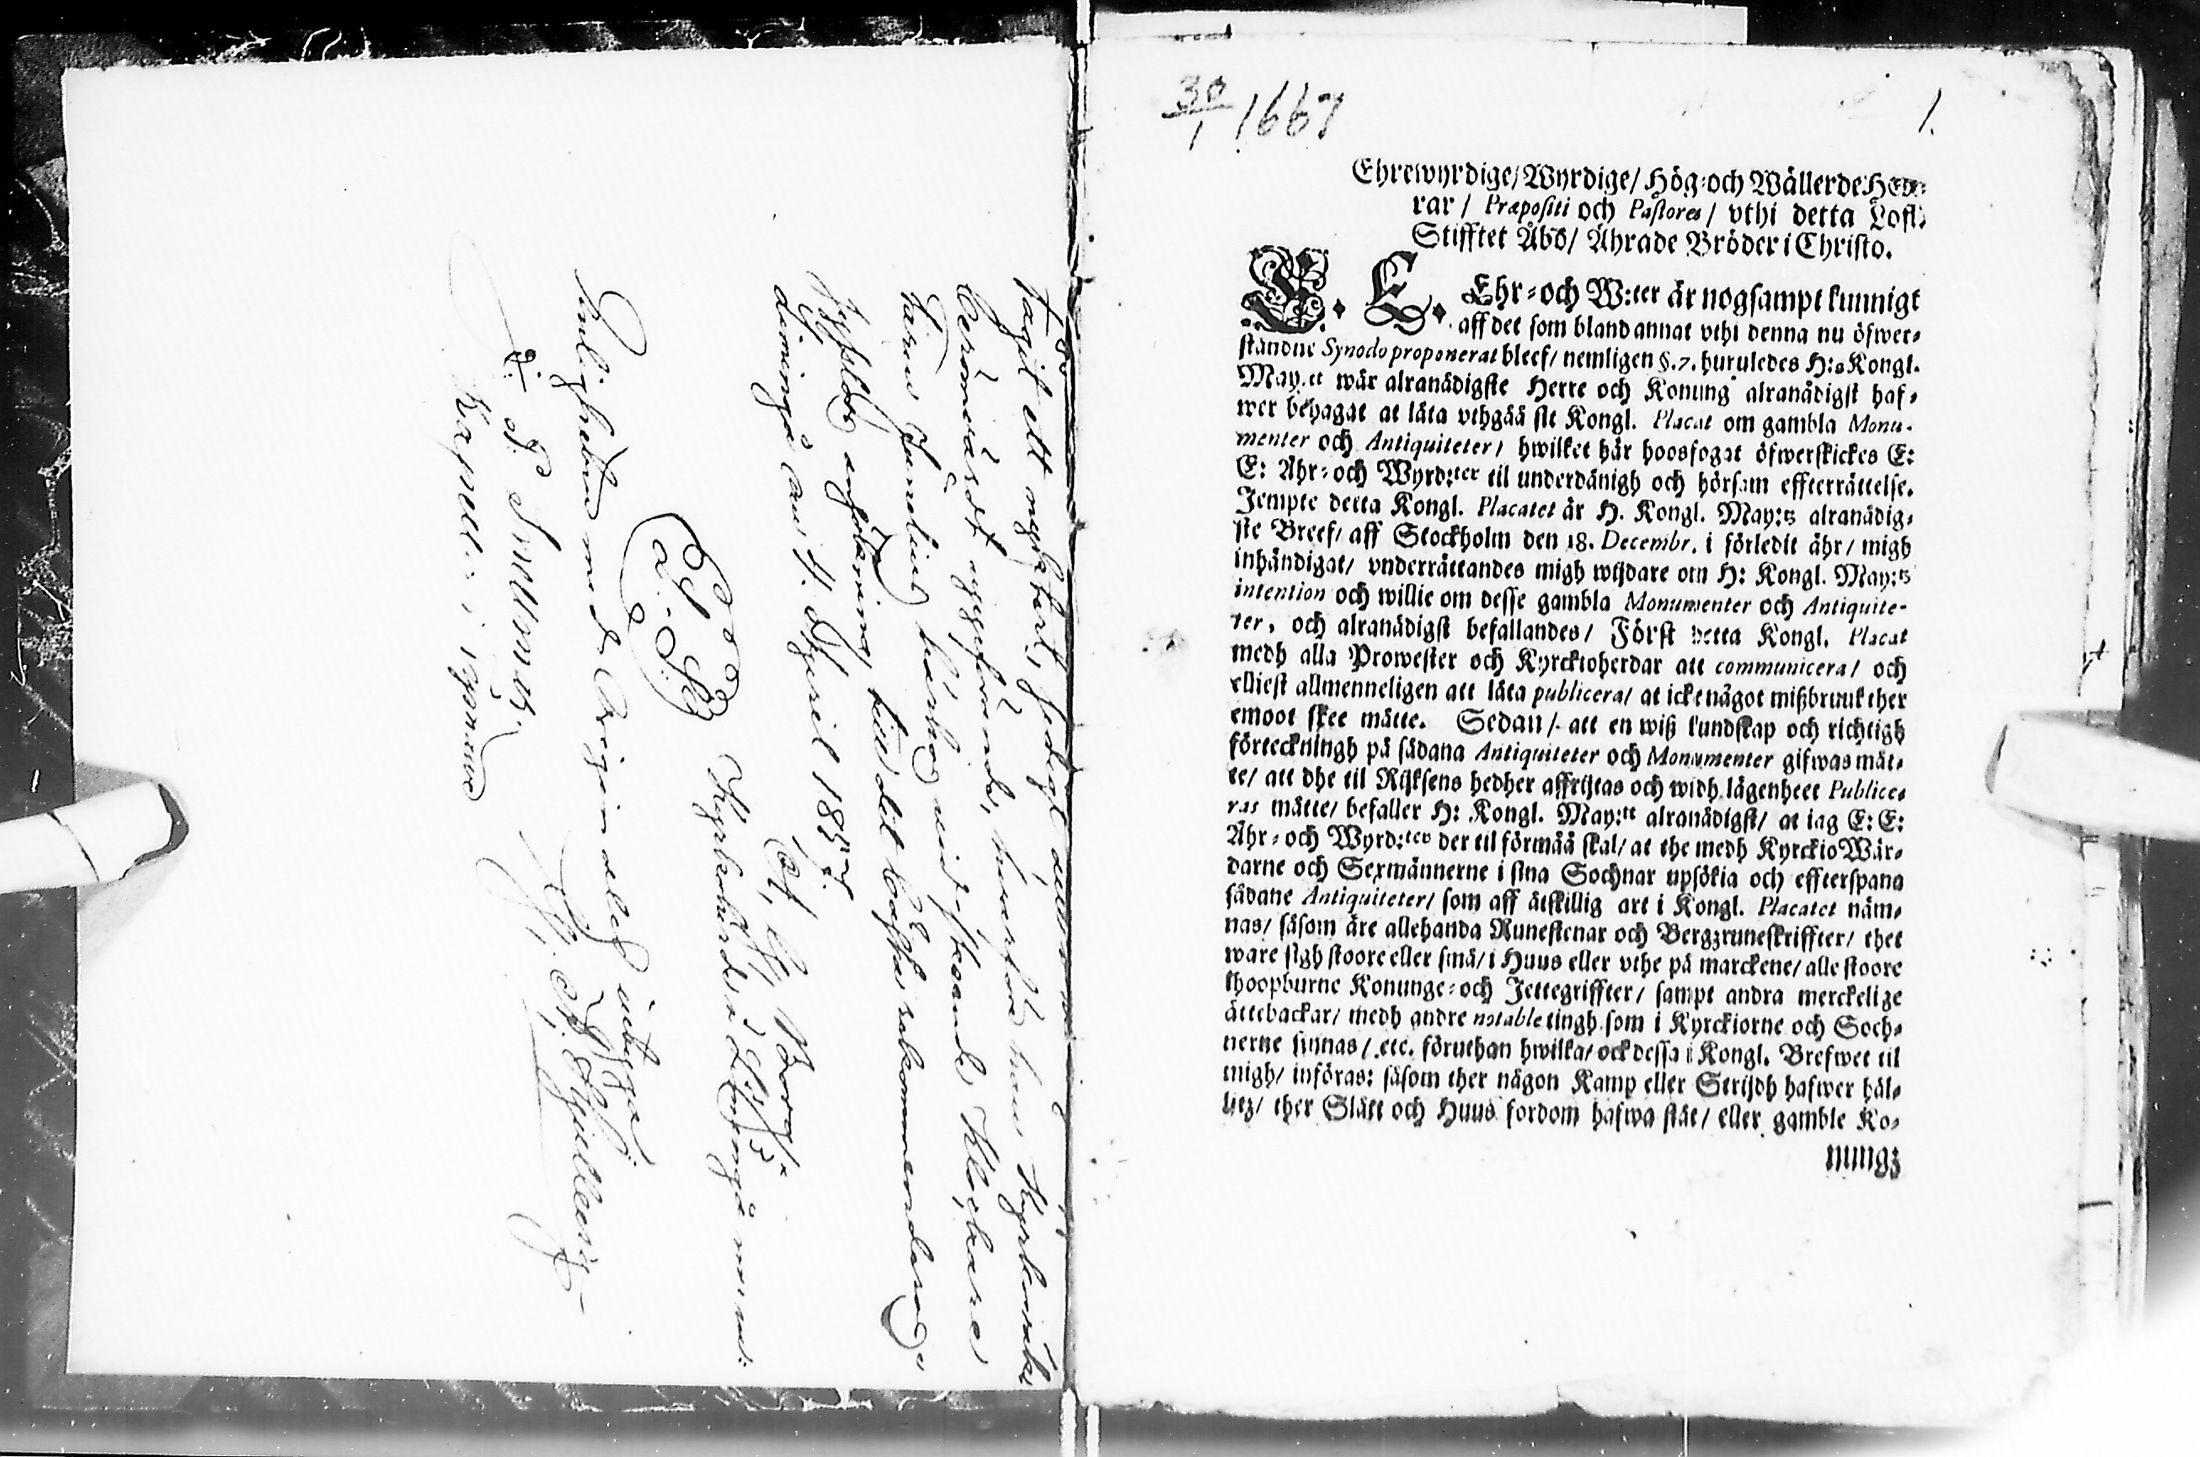 tagit ett nybehof,
berömwärdt uppförande, hwarföre han Kyrkowärds
Junelius härhos Klockare
sysslor anförinna, till det bästa rekommenderas
dinina den 4. April 1857.
C. G. Borg
Kyrkoherde i
L. S.
Enligheten med Originalet intyga
J. F. Snellman.
Kapell: i Yppari
30/1 1667
1.
Ehrewyrdige/ Wyrdige/ Hög-och Wällerde Her-
rar / Præpositi och Pastores / vthi detta Lofl.
Stifftet Åbo/ Ährade Bröder i Christo.
E. E. Ehr-och W:ter är nogsampt kunnigt
aff det som bland annat vthi denna nu öfwer-
ståndne Synodo proponerat bleef/ nemligen §.7. huruledes H:s Kongl.
May.tt wår alranådigste Herre och Konung alranådigst haf-
wer behagat at låta vthgåå sit Kongl. Placat om gambla Monu-
menter och Antiquiteter/ hwilket här hoosfogat öfwerskickes E:
E: Ähr-och Wyrd:ter til underdånigh och hörsam effterrättelse.
Jempte detta Kongl. Placatet är H. Kongl. May:tz alranådig-
ste Breef/ aff Stockholm den 18. Decembr. i förledit åhr/ migh
inhändigat/ vnderrättandes migh wijdare om H: Kongl. May:tz
intention och willie om desse gambla Monumenter och Antiquite-
ter, och alranådigst befallandes/ Först detta Kongl. Placat
medh alla Prowester och Kyrckioherdar att communicera/ och
elliest allmenneligen att låta publicera/ at icke något mißbruuk ther
emoot skee måtte. Sedan/ att en wiß kundskap och richtigh
förteckningh på sådana Antiquiteter och Monumenter gifwas måt-
te/ att dhe til Rijksens hedher affrijtas och widh lägenheet Publice-
ras måtte/ befaller H: Kongl. May:tt alranådigst/ at iag E: E:
Ähr-och Wyrd:ter der til förmåå skal/ at the medh Kyrckio Wär-
darne och Sexmännerne i sina Sochnar upsökia och effterspana
sådane Antiquiteter/ som aff åtskillig art i Kongl. Placatet näm-
nas/ såsom äre allehanda Runestenar och Bergzruneskriffter/ thet
ware sigh stoore eller små/ i Huus eller vthe på marckene/ alle stoore
ihoopburne Konunge-och Jettegriffter/ sampt andra merckelige
ättebackar/ medh andre notable tingh som i Kyrckiorne och Soch-
nerne finnas/ etc. föruthan hwilka/ ock dessa i Kongl. Brefwet til
migh/ införas: såsom ther någon Kamp eller Strijdh hafwer hål-
litz/ ther Slått och Huus fordom hafwa ståt/ eller gamble Ko-
nungz